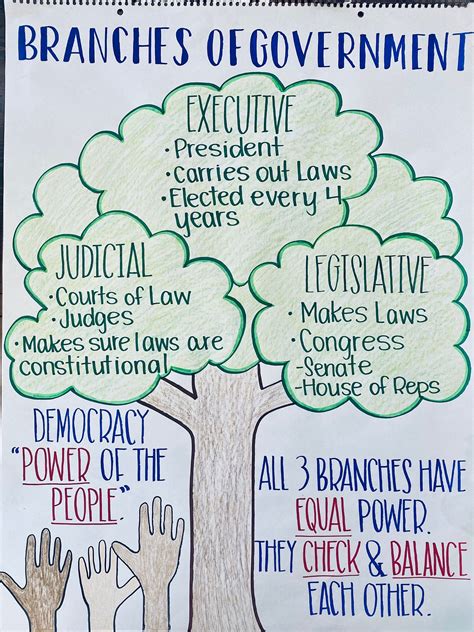 BRANCHES OF GOVERNMENT
EXECUTIVE
• President
• Carries out Laws
• Elected every 4
years
JUDICIAL
• Courts of Law
• Judges
• Makes sure laws are
constitutional
LEGISLATIVE
• Makes Laws
• Congress
-Senate
-House of Reps
DEMOCRACY
"POWER OF THE
PEOPLE."
ALL 3 BRANCHES HAVE
EQUAL POWER.
THEY CHECK & BALANCE
EACH OTHER.